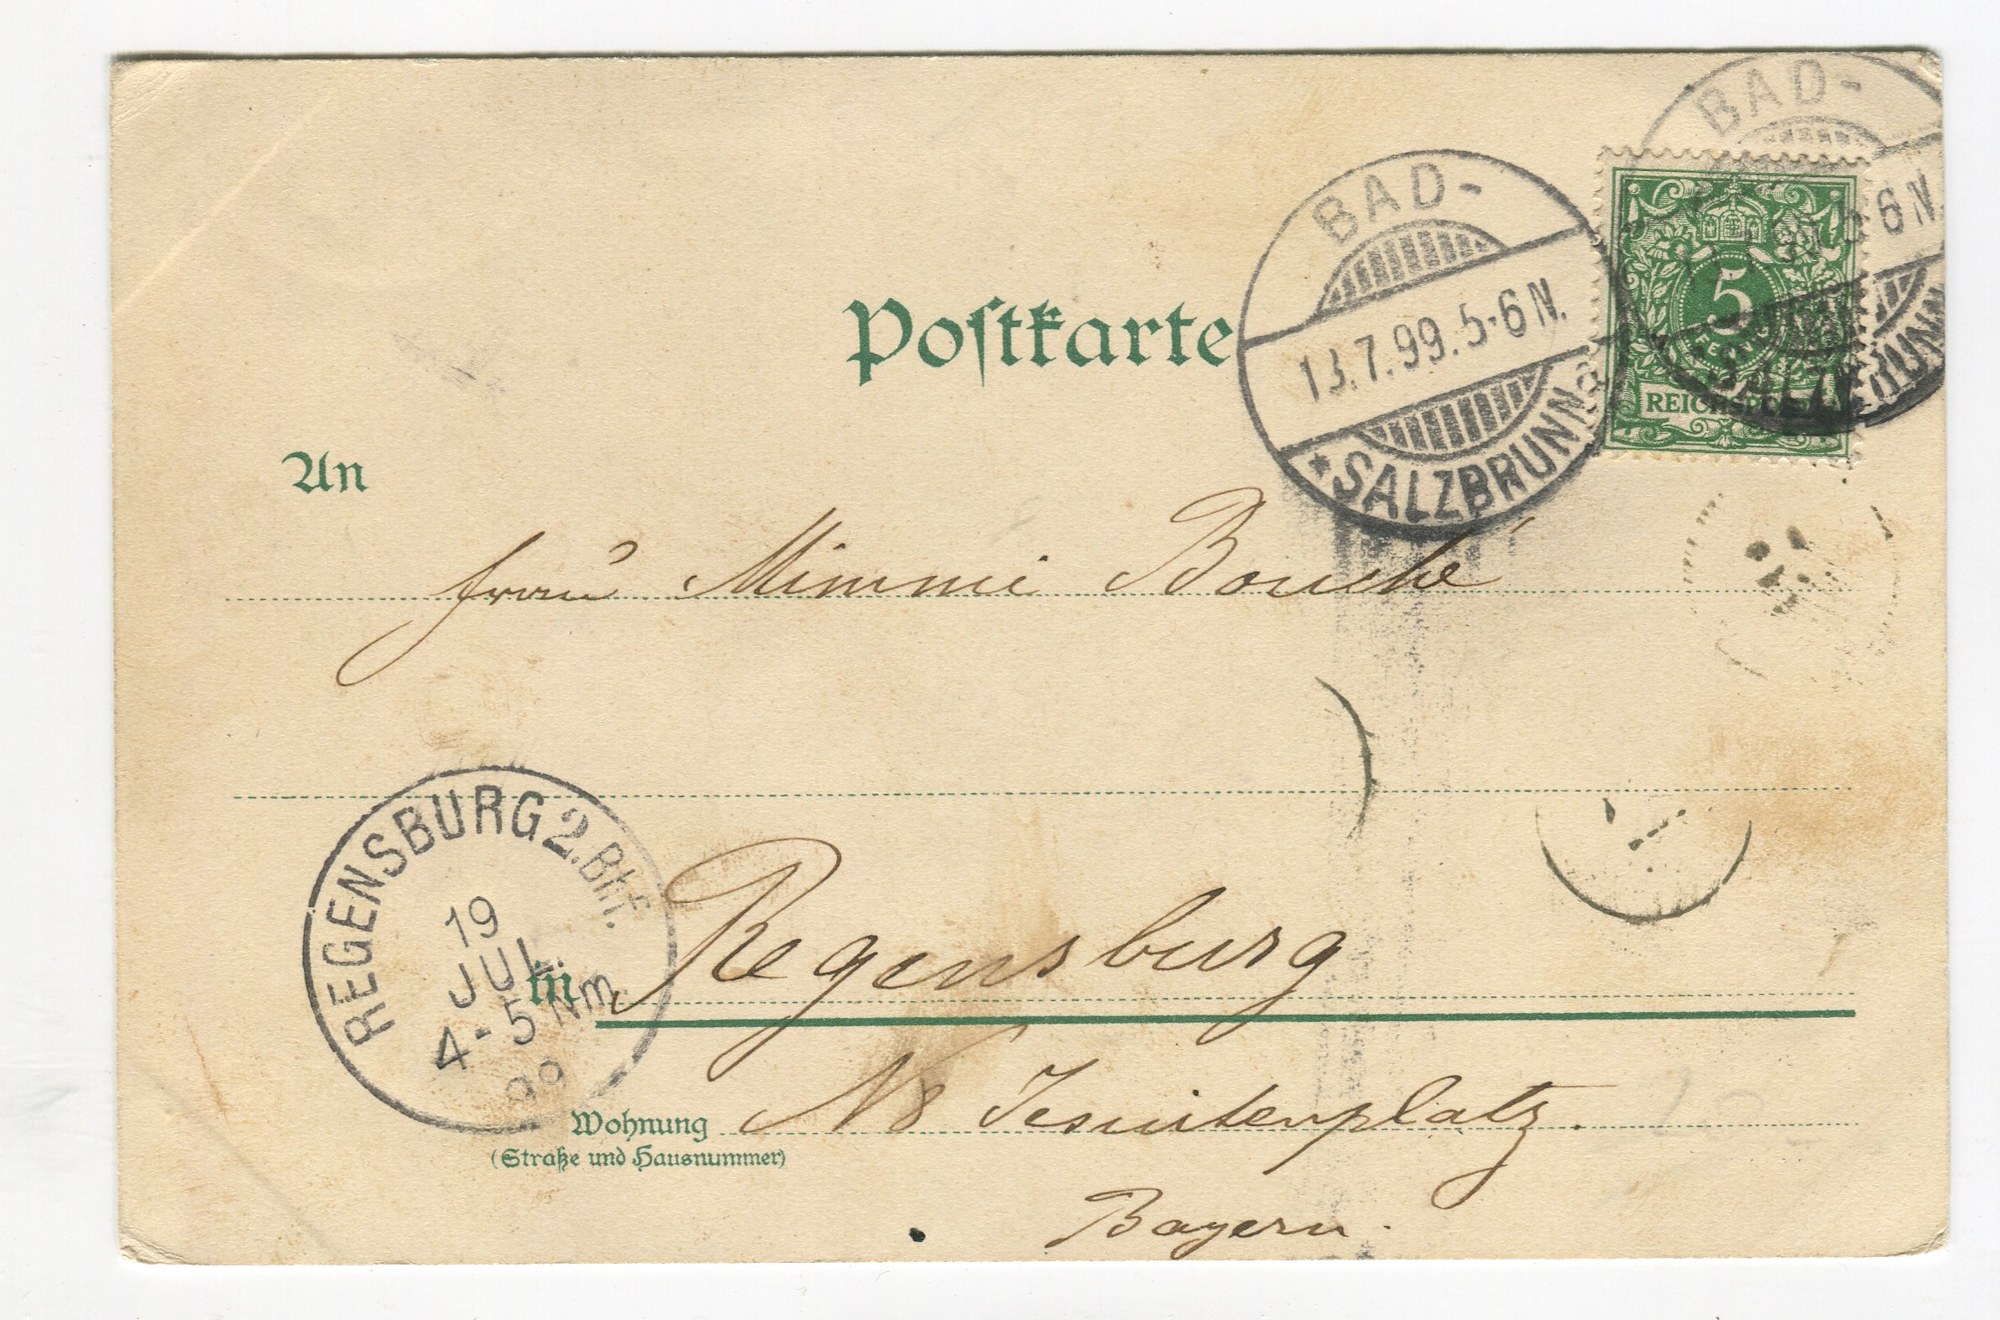 BAD-
13.7.99.5-6N.
* SALZBRUNN
BAD-
6N.
SALZBRUNN
5
REICHSPOST
Postkarte
An
Frau Mimmi Bouché
REGENSBURG 2.Bhf.
19
JUL.
4-5 Nm.
99
in Regensburg
Wohnung N 8 Jesuitenplatz.
(Straße und Hausnummer)
Bayern.